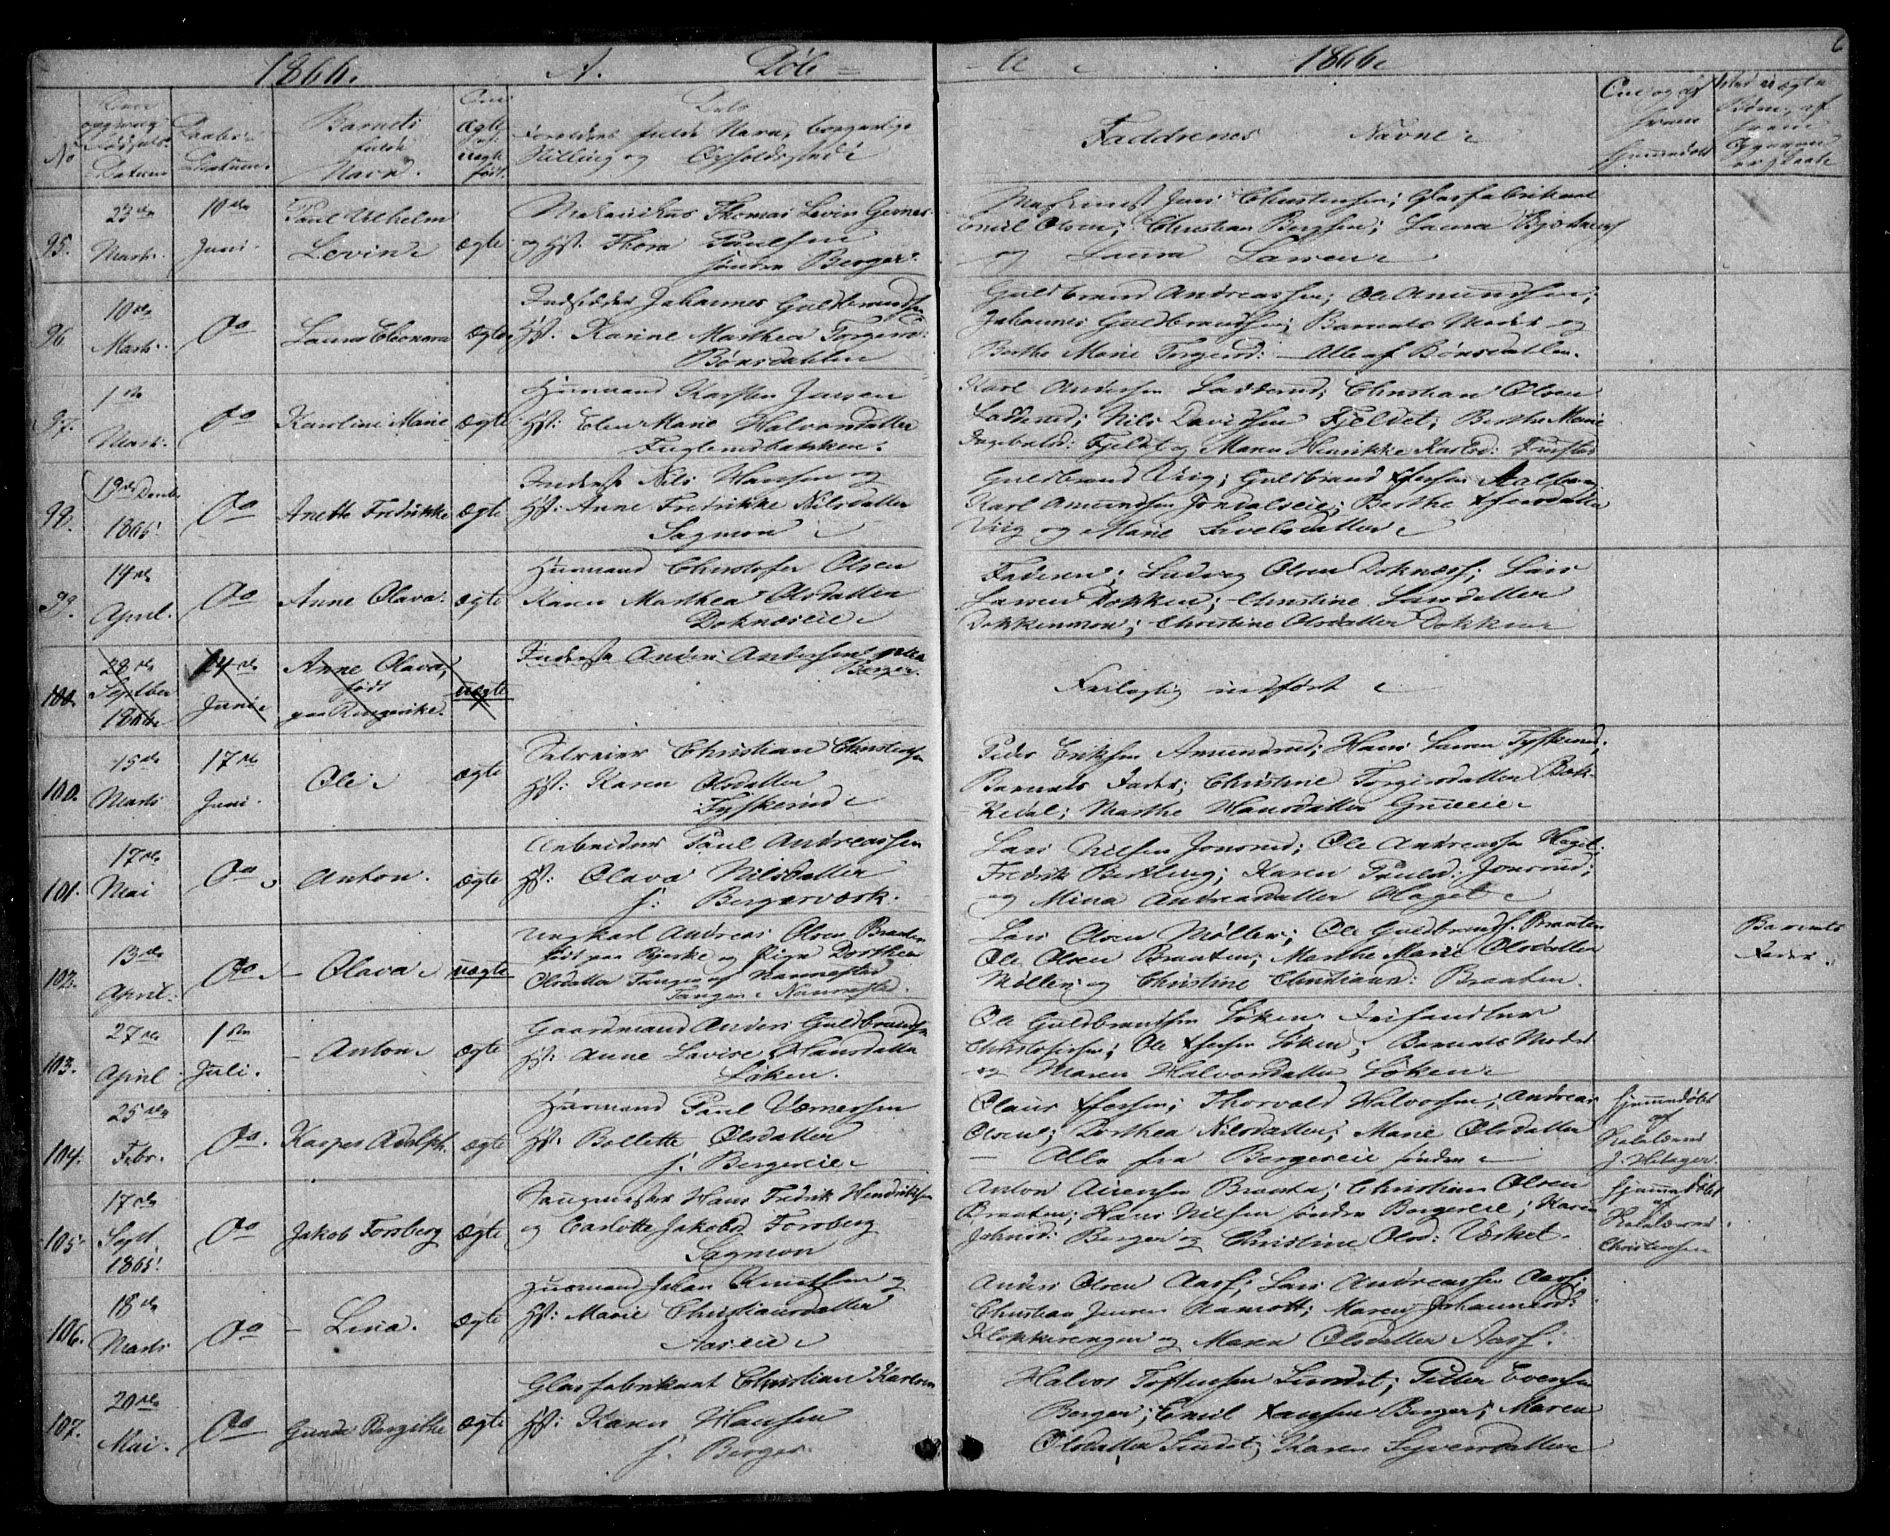 1866. A. Döb- -te 1866.
No
Datum
Daabs-
Datum.
Barnets
fulde
Navn.
Om
ægte
uægte
født.
Forældres fulde Navn, borgerlige
Stilling og Opholdssted
Faddrenes Navne
Om og af
hvem
hjemmedøbt
95.
23de
Marts.
10de
Juni.
Paul Vilhelm
Levin
ægte
Thomas Levin Gernes
og Hst. Thora Paulsen
søndre Berger.
Maskinist Jens Christensen; Glasfabrikant
Emil Olsen; Christian Berghen; Laura
og Laura Larsen
96
10de
Marts.
Do
Laura Eleonora
ægte
Inderster Johannes Guldbrandsen
Hst: Karine Marthea Torgersd:
Bönsdahlen
Guldbrand Andreassen; Ole Amundsen;
Johannes Guldbrandsen; Barnets Moder og
Berthe Marie Torgersd: - Alle af Bönsdahlen.
97.
1ste
Marts.
Do
Karoline Marie
ægte
Huusmand Karsten Jensen
Hst: Ellen Marie Halvorsdatter
Fuglerudbakken.
Karl Andersen Ladderud; Christian Olsen
Ladderud; Nils Davidsen Fjeldet; Berthe Marie
Ingebretsd: Fjeldet og Maren Henrikke Karlsd:
98.
19de Decbr
1865.
Do
Anette Fredrikke
ægte
Inderst Nils Hansen og
Hst: Anne Fredrikke Nilsdatter
Sagmon
Guldbrand Viig; Guldbrand
Karl Amundsen Jondalseie; Berthe
Viig og Marie Sivelsdatter
99.
14de
April.
Do
Anne Olava.
ægte
Huusmand Christofer Olsen
Karen Marthea Olsdatter
Doknæseie
Faderen; Ludvig Olsen Doknæss; Lars
Larsen Dokken; Christine Larsdatter
Dokkenmon; Christine Olsdatter Dokken
100.
28de
Septber
1866
24de
Juni
Anne Olava,
født
paa Ringerike.
uægte
Inderst Anders Andersen
Berger.
Feilagtig indført
100.
15de
Marts
17de
Juni.
Ole
ægte
Selveier Christian Christensen
Hst: Karen Olsdatter
Tyskerud
Peder Eriksen Amundrud; Hans Larsen Tyskerud;
Barnets Fader; Christine Torgersdatter
Marthe Hansdatter
101.
17de
Mai
Do
Anton.
ægte
Arbeider Paul Andreassen
Hst: Olava Nilsdatter
s: Bergerværk.
Lars Nilsen Jonsrud; Ole Andreassen Haget;
Fredrik Bertberg; Karen Paulsd: Jonsrud;
og Mina Andreasdatter Haget
102.
13de
April.
Do
Olava
uægte
Ungkarl Andreas Olsen Braaten
født paa Bjerke og Pige Dorthea
Olsdatter Tangen af Nannestad
Tangen Nannestad.
Lars Olsen Møller; Ole Guldbrands. Braaten
Ole Olsen Braaten; Marthe Marie Olsdatter
Møller og Christine Christiansd: Braaten.
Barnets
Fader.
103.
27de
April
1ste
Juli.
Anton
ægte
Gaardmand Anders Guldbrandsen
Hst: Anne Lovise Hansdatter
Løken.
Ole Guldbrandsen Løken
Christofersen; Ole Løken; Barnets Moder
og Maren Halvorsdatter Løken
104.
25de
Febr.
Do.
Kasper Adolph.
ægte
Huusmand Paul Værnessen
Hst: Bollette Olsdatter
s: Bergereie
Olaus; Thorvald Halvorsen; Andreas
Olsen; Dorthea Nilsdatter; Marie Olsdatter
- Alle fra Bergereie søndre
Hjemmedøbt
af
Skolelærer
J. Hilager.
105.
17de
Sept
1865.
Do
Jakob Forsberg
ægte
Hans Fredrik Hendriksen
og Carlotte Jakobsd Forsberg
Sagmon
Anton Braaten; Christian Olsen
Braaten; Hans Nilsen søndre Bergereie; Karen
Johnsd: Berger og Christine Olsd: Værket.
Hjemmedøbt
af
Skolelærer
Christensen
106.
18de
Marts
Do
Lina.
ægte
Huusmand Johan Knutsen og
Hst: Marie Christiansdatter
Aaseie
Anders Olsen Aass; Lars Andreassen Aass;
Christian Jensen Ramott; Maren Johannesd:
Klokkerengen og Maren Olsdatter Aass.
107.
20de
Mai.
Do
Gunda Bergithe
ægte
Glasfabrikant Christian Karlsen
Hst: Karen Hansen
s. Berger
Halvor Toftensen Sundet; Petter Evensen
Berger; Emil Hansen Berger; Maren
Olsdatter Sundet; Karen Syversdatter